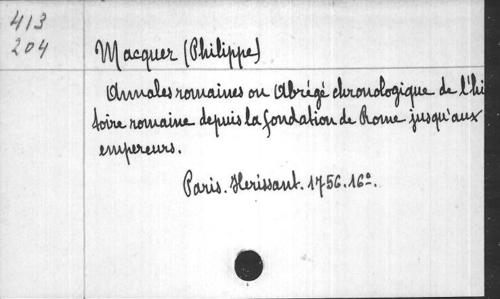 413
204
Macquer (Philippe)
Annales romaines ou Abrégé chronologique de l'hi
toire romaine depuis la fondation de Rome jusqu'aux
empereurs.
Paris. Herissant. 1756. 16º.